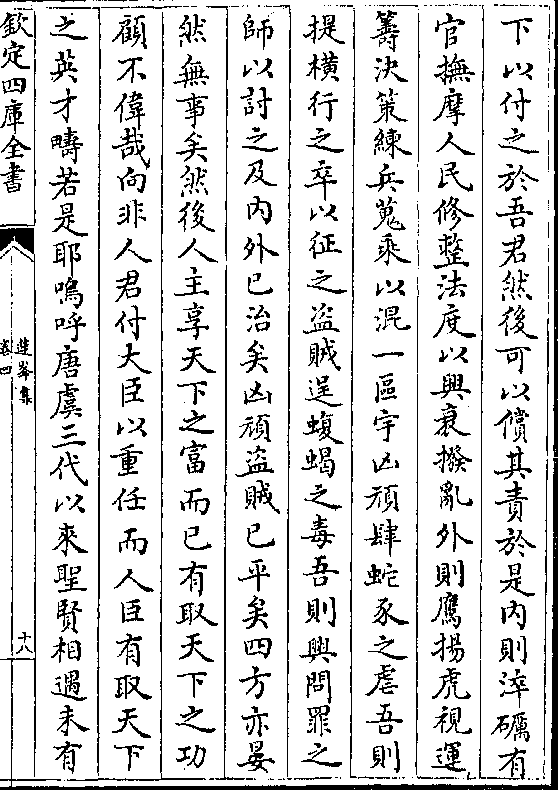 下以付之於吾君然後可以償其責於是内則淬礪有
官撫摩人民修整法度以興衰撥亂外則鷹揚虎視運
籌決策練兵蒐乘以混一區宇凶頑肆蛇豕之虐吾則
提横行之卒以征之盜賊逞蝮蝎之毒吾則興問罪之
師以討之及内外已治矣凶頑盜賊已平矣四方亦晏
然無事矣然後人主享天下之富而已有取天下之功
顧不偉哉向非人君付大臣以重任而人臣有取天下
之英才疇若是耶嗚呼唐虞三代以來聖賢相遇未有
欽定四庫全書
蓮峯集
卷四
十八